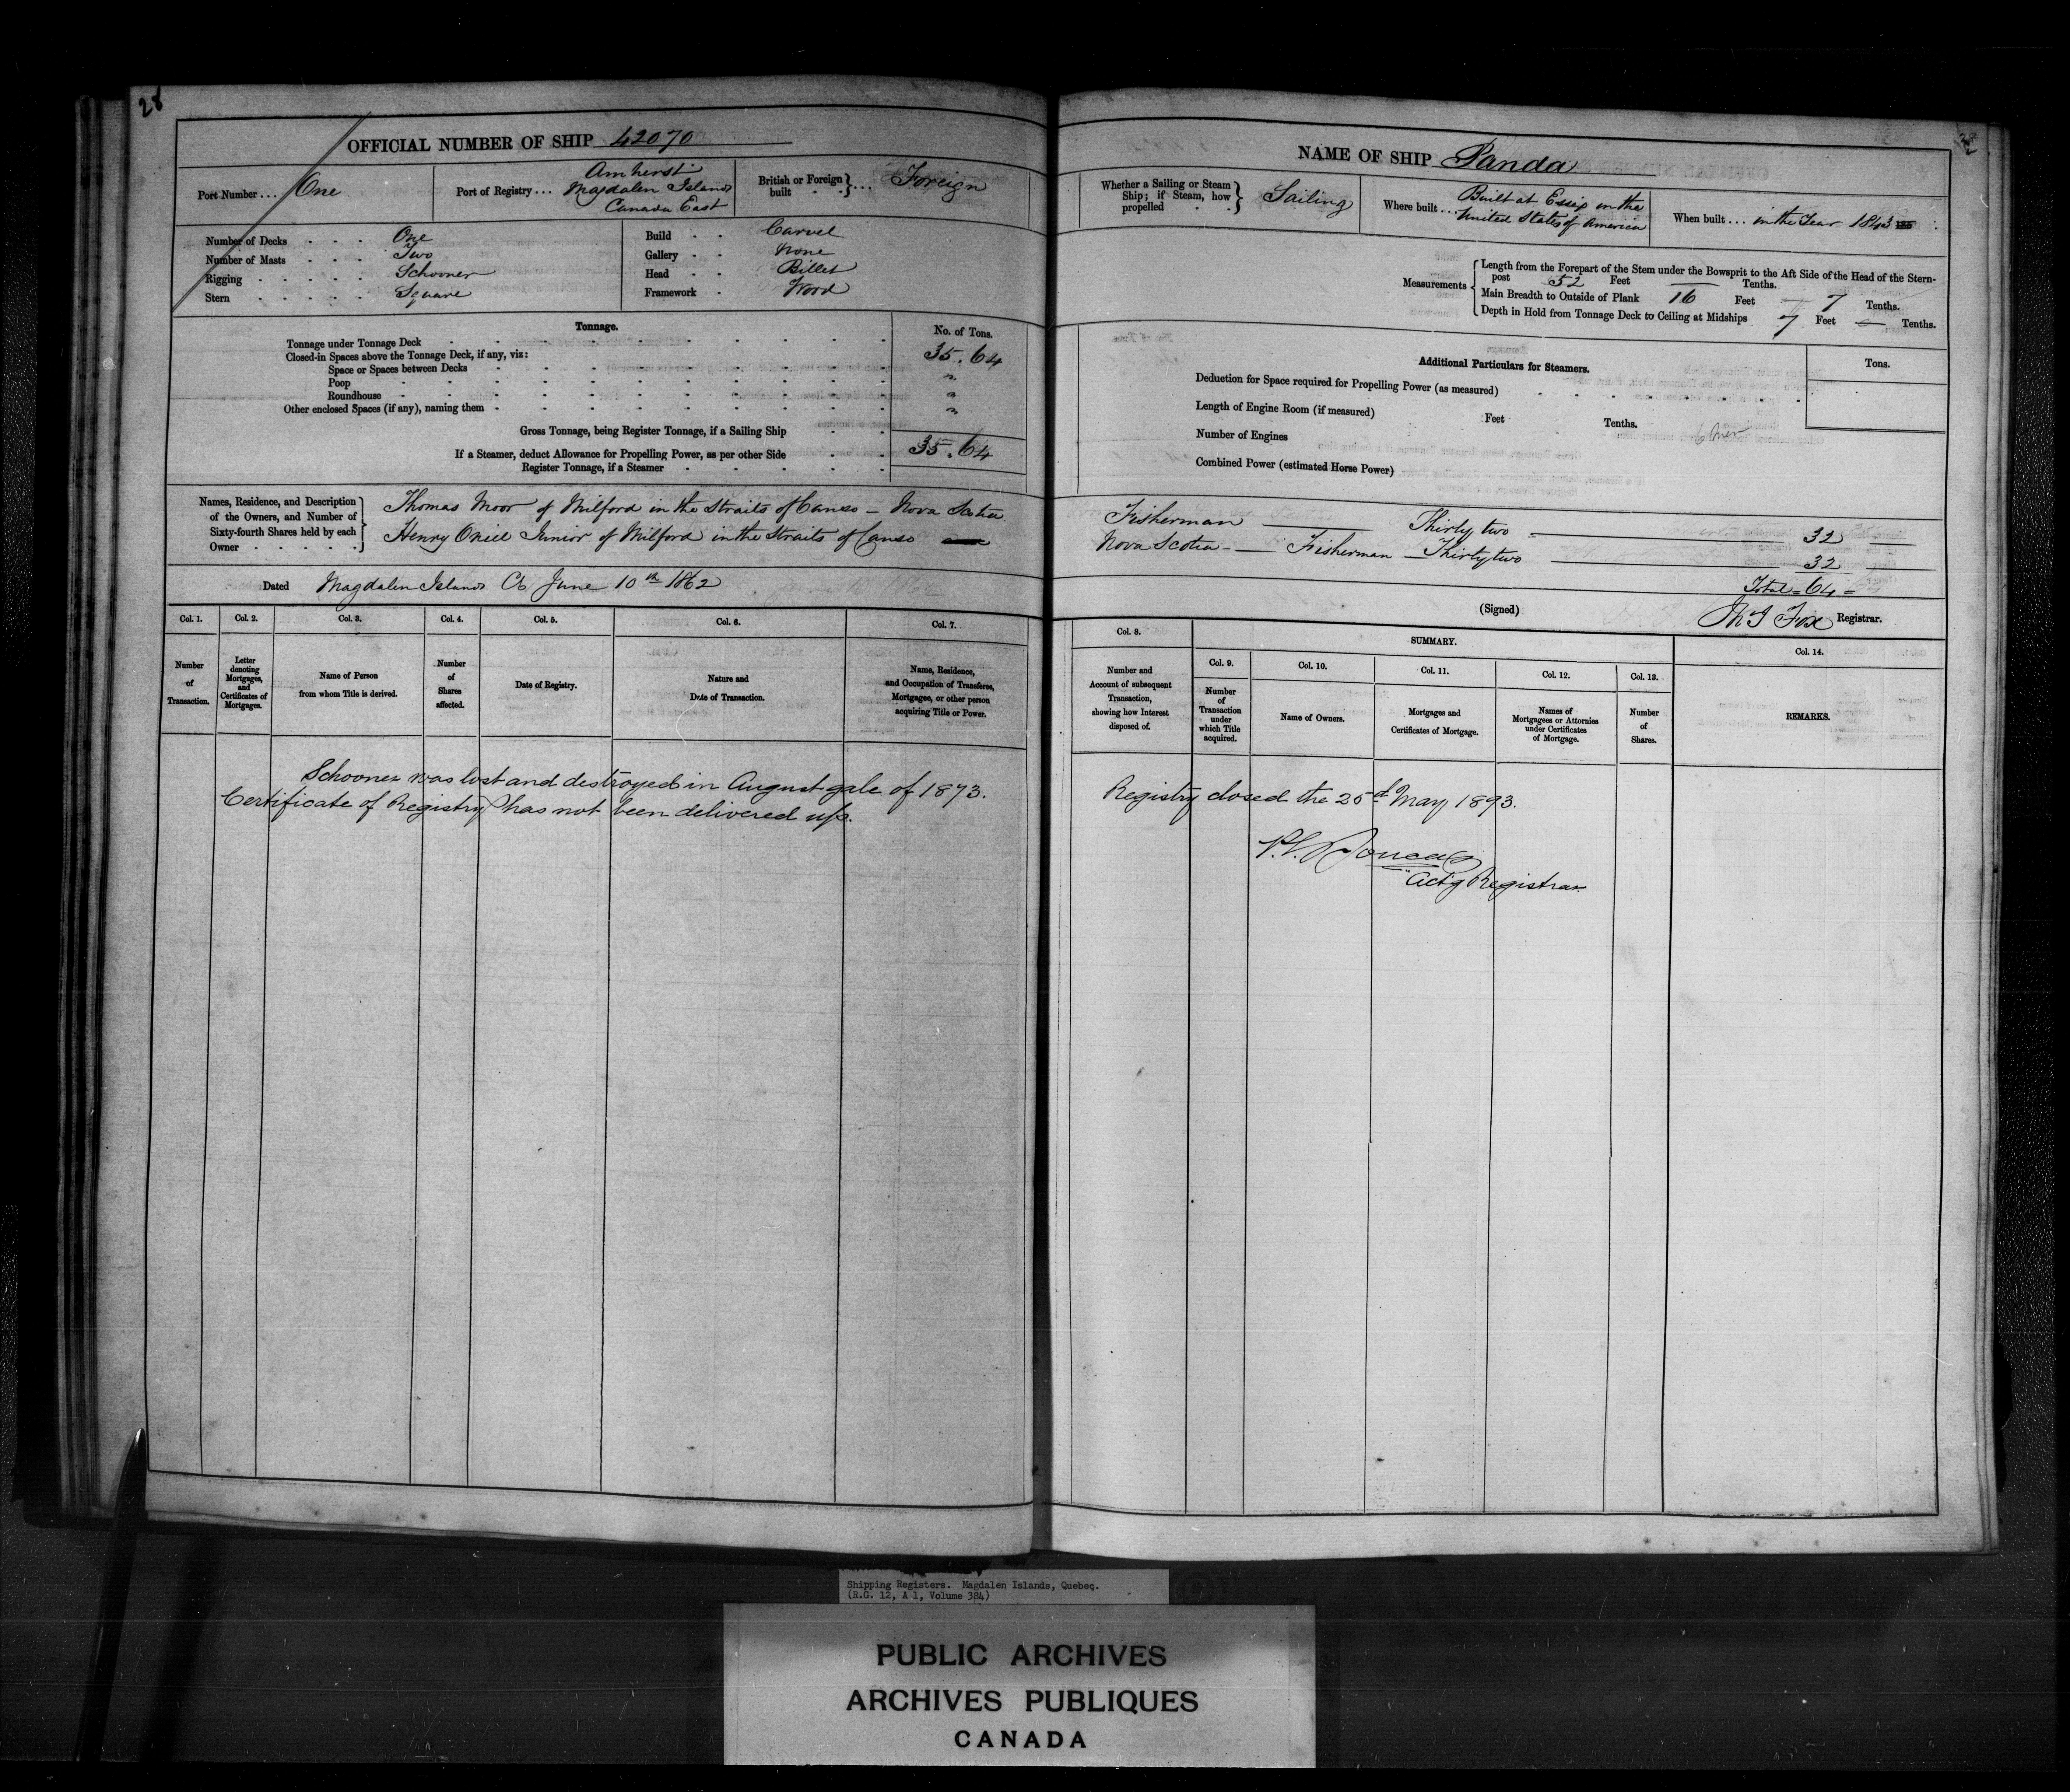 28
OFFICIAL NUMBER OF SHIP 42070
Port Number . . . One
Port of Registry . . . Amherst
Magdalen Islands
Canada East
British or Foreign built . . } . . . Foreign
Number of Decks . . . . One
Number of Masts . . . Two
Rigging . . . . . Schooner
Stern . . . . . Square
Build . . Carvel
Gallery . . None
Head . . Billet
Framework . Wood
Tonnage.
No. of Tons.
Tonnage under Tonnage Deck 35.64
Closed-in Spaces above the Tonnage Deck, if any, viz:
Space or Spaces between Decks "
Poop "
Roundhouse "
Other enclosed Spaces (if any), naming them
Gross Tonnage, being Register Tonnage, if a Sailing Ship
If a Steamer, deduct Allowance for Propelling Power, as per other Side 35.64
Register Tonnage, if a Steamer
Names, Residence, and Description
of the Owners, and Number of
Sixty-fourth Shares held by each
Owner
Thomas Moor of Milford in the Straits of Canso – Nova Scotia
Henry Oniel Junior of Milford in the Straits of Canso
Dated Magdalen Islands CE June 10th 1862
Col. 1. Col. 2. Col. 3. Col. 4. Col. 5. Col. 6. Col. 7.
Number of Transaction.
Letter denoting Mortgages, and Certificates of Mortgages.
Name of Person from whom Title is derived.
Number of Shares affected.
Date of Registry.
Nature and Date of Transaction.
Name, Residence, and Occupation of Transferee, Mortgagee, or other person acquiring Title or Power.
Schooner was lost and destroyed in August gale of 1873.
Certificate of Registry has not been delivered up.
NAME OF SHIP Panda
Whether a Sailing or Steam Ship; if Steam, how propelled } Sailing
Where built . . . Built at Essix in the
United States of America
When built . . . in the Year 1843
Measurements
Length from the Forepart of the Stem under the Bowsprit to the Aft Side of the Head of the Stern-
post 52 Feet — Tenths.
Main Breadth to Outside of Plank 16 Feet 7 Tenths.
Depth in Hold from Tonnage Deck to Ceiling at Midships 7 Feet — Tenths.
Additional Particulars for Steamers.
Tons.
Deduction for Space required for Propelling Power (as measured)
Length of Engine Room (if measured) Feet Tenths.
Number of Engines
Combined Power (estimated Horse Power)
Fisherman — Thirty two — 32
Nova Scotia — Fisherman — Thirty two — 32
Total = 64
(Signed) Registrar.
J Fox
Col. 8.
SUMMARY.
Col. 9. Col. 10. Col. 11. Col. 12. Col. 13. Col. 14.
Number and Account of subsequent Transaction, showing how Interest disposed of.
Number of Transaction under which Title acquired.
Name of Owners.
Mortgages and Certificates of Mortgage.
Names of Mortgagees or Attornies under Certificates of Mortgage.
Number of Shares.
REMARKS.
Registry closed the 25th May 1893.
Actg Registrar
Shipping Registers. Magdalen Islands, Quebec.
(R.G. 12, A 1, Volume 384)
PUBLIC ARCHIVES
ARCHIVES PUBLIQUES
CANADA